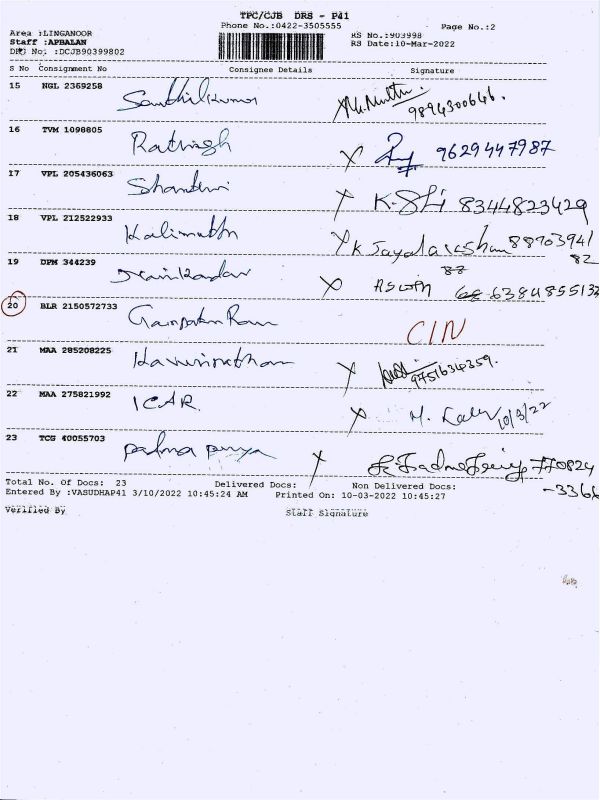 TPC/CJB DRS - P41
Phone No.:0422-3505555 Page No.:2
Area :LINGANOOR RS No.:903998
Staff :APBALAN RS Date:10-Mar-2022
DRS No. :DCJB90399802
S No Consignment No Consignee Details Signature
15 NGL 2369258 Senthilkumar 9894300646.
16 TVM 1098805 9629447987
17 VPL 205436063 8344823429
18 VPL 212522933 Kalimuthu K Jayalakshmi 88703941
82
19 DPM 344239 ASWIN 63848551
20 BLR 2150572733 Ganpath Ram CIN
21 MAA 285208225 9751634359.
22 MAA 275821992 ICAR. M. 10/3/22
23 TCG 40055703 Padma priya 770824
-3366
Total No. Of Docs: 23 Delivered Docs: Non Delivered Docs:
Entered By :VASUDHAP41 3/10/2022 10:45:24 AM Printed On: 10-03-2022 10:45:27
Verified By Staff Signature